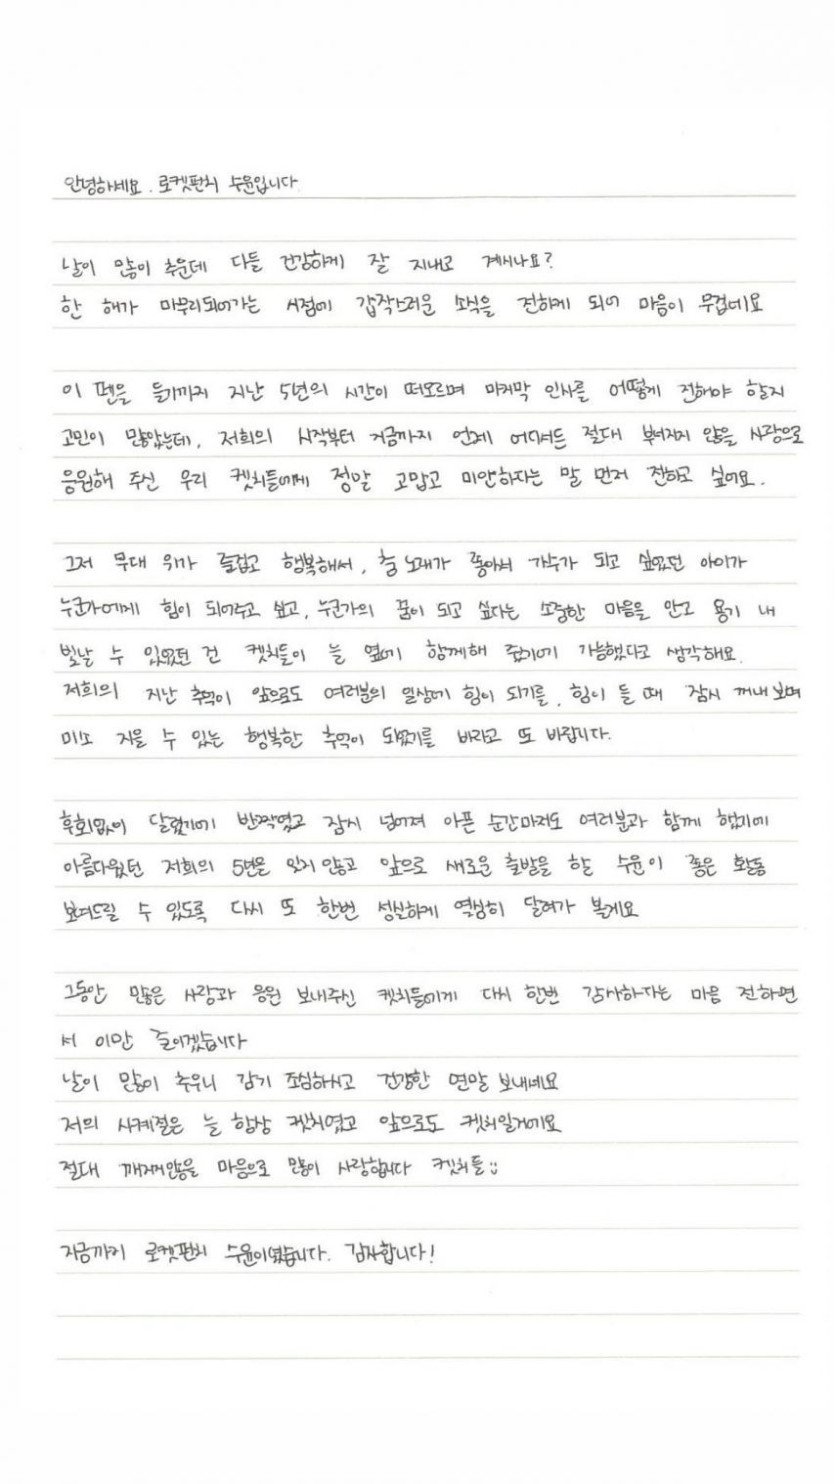 안녕하세요. 로켓펀치 수윤입니다
날이 많이 추운데 다들 건강하게 잘 지내고 계시나요?
한 해가 마무리되어가는 시점에 갑작스러운 소식을 전하게 되어 마음이 무겁네요
이 펜을 들기까지 지난 5년의 시간이 떠오르며 마지막 인사를 어떻게 전해야 할지
고민이 많았는데, 저희의 시작부터 지금까지 언제 어디서든 절대 부서지지 않을 사랑으로
응원해 주신 우리 켓치들에게 정말 고맙고 미안하다는 말 먼저 전하고 싶어요.
그저 무대 위가 즐겁고 행복해서, 춤 노래가 좋아서 가수가 되고 싶었던 아이가
누군가에게 힘이 되어주고 싶고, 누군가의 꿈이 되고 싶다는 소중한 마음을 안고 용기 내
빛날 수 있었던 건 켓치들이 늘 옆에 함께해 줬기에 가능했다고 생각해요.
저희의 지난 추억이 앞으로도 여러분의 일상에 힘이 되기를, 힘이 들 때 잠시 꺼내 보며
미소 지을 수 있는 행복한 추억이 되었기를 바라고 또 바랍니다.
후회없이 달렸기에 반짝였고 잠시 넘어져 아픈 순간마저도 여러분과 함께 했기에
아름다웠던 저희의 5년을 잊지 않고 앞으로 새로운 출발을 할 수윤이 좋은 활동
보여드릴 수 있도록 다시 또 한번 성실하게 열심히 달려가 볼게요
그동안 많은 사랑과 응원 보내주신 켓치들에게 다시 한번 감사하다는 마음 전하면
서 이만 줄이겠습니다
날이 많이 추우니 감기 조심하시고 건강한 연말 보내세요
저의 사계절은 늘 항상 켓치였고 앞으로도 켓치일거에요
절대 깨지지않을 마음으로 많이 사랑합니다 켓치들:)
지금까지 로켓펀치 수윤이였습니다. 감사합니다!